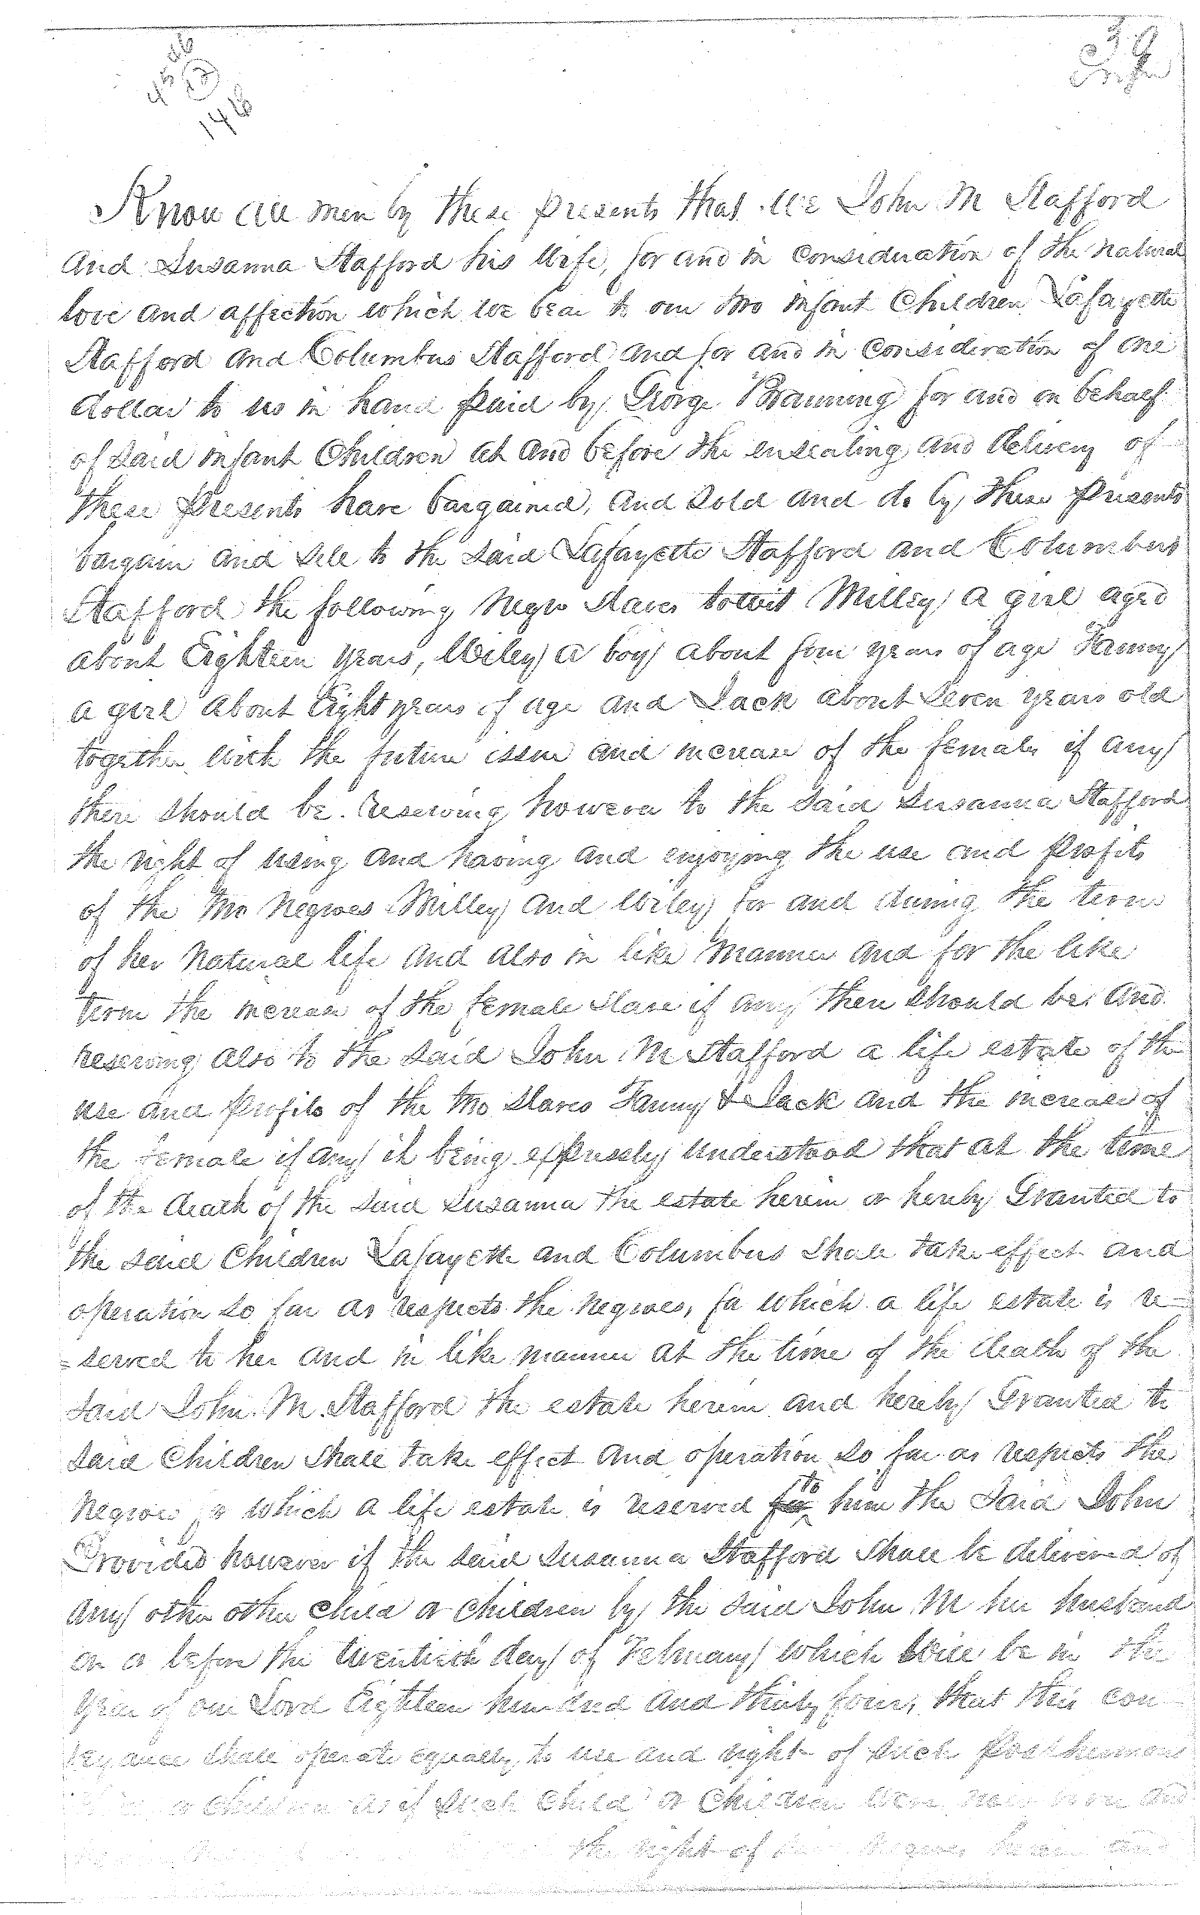 45 46
12
146
39
Know all men by these presents that We John M Stafford
and Susanna Stafford his Wife, for and in consideration of the natural
love and affection which we bear to our two infant Children Lafayette
Stafford and Columbus Stafford and for and in consideration of one
dollar to us in hand paid by George Branning for and on behalf
of said infant Children at and before the ensealing and delivery of
these presents have bargained, and sold and do by these presents
bargain and sell to the said Lafayette Stafford and Columbus
Stafford the following Negro slaves towit Milley a girl aged
about Eighteen years, Wiley a boy about four years of age Fanny
a girl about Eight years of age and Jack about seven years old
together with the future issue and increase of the female if any
there should be. reserving however to the said Susanna Stafford
the right of using and having and enjoying the use and profits
of the two negroes Milley and Wiley for and during the term
of her natural life and also in like manner and for the like
term the increase of the female slave if any there should be and
reserving also to the said John M Stafford a life estate of the
use and profits of the two slaves Fanny & Jack and the increase of
the female if any it being expressly understood that at the time
of the death of the said Susanna the estate herein or hereby Granted to
the said Children Lafayette and Columbus shall take effect and
operation so far as respects the negroes, for which a life estate is re
=served to her and in like manner at the time of the death of the
said John. M. Stafford the estate herein and hereby Granted to
said Children shall take effect and operation so far as respects the
negroes for which a life estate is reserved to him the said John
Provided however if the said Susanna Stafford shall be delivered of
any other other child or children by the said John M her husband
on or before the twentieth day of February which will be in the
year of our Lord Eighteen hundred and thirty four, that this con
veyance shall operate equally to use and right of such posthumous
or children as if such child or children were now born and
the right of negroes herein and